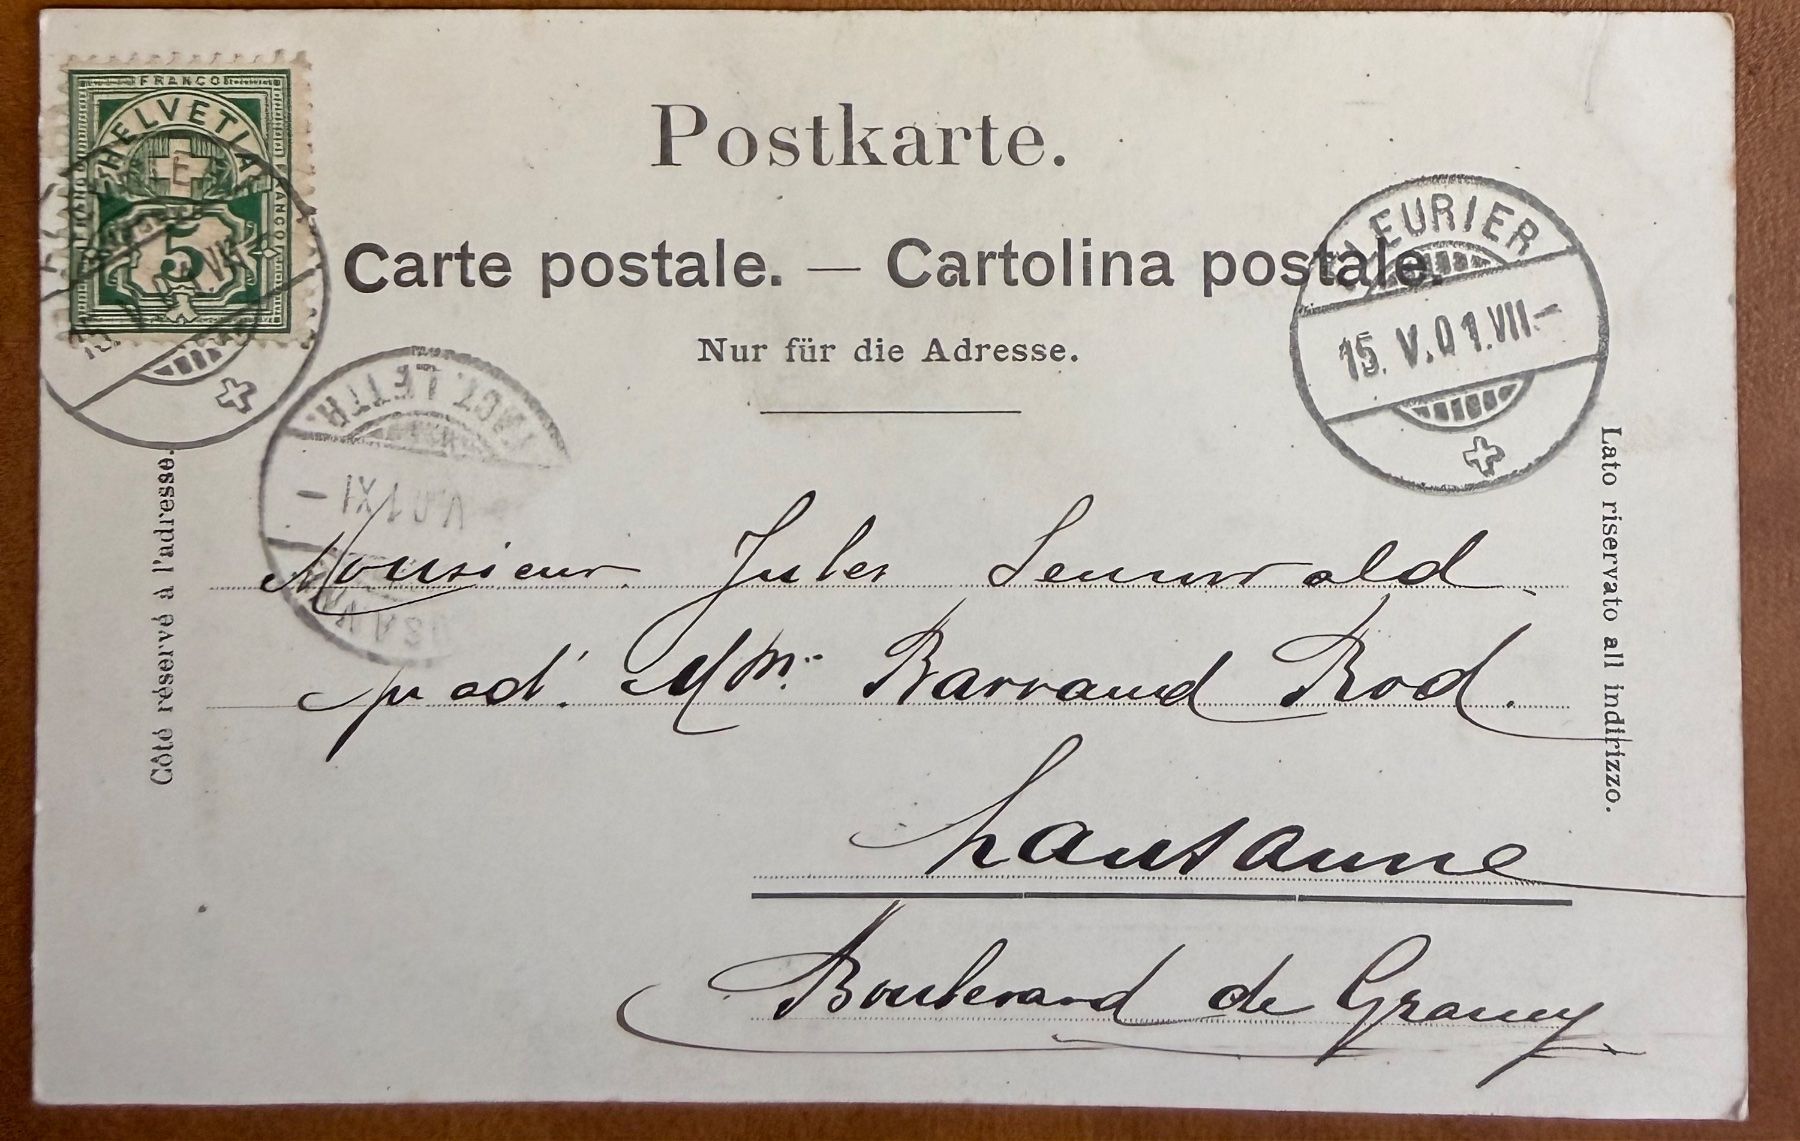 FRANCO
HELVETIA
FRANCO
5
Postkarte.
Carte postale. — Cartolina postale.
Nur für die Adresse.
FLEURIER
15. V. 01. VII –
LETTR.
V. 01 XI –
Côté réservé à l'adresse.
Lato riservato all indirizzo.
Monsieur Jules Sennwald
p ad. Mme Barraud Rod.
Lausanne
Boulevard de Grancy